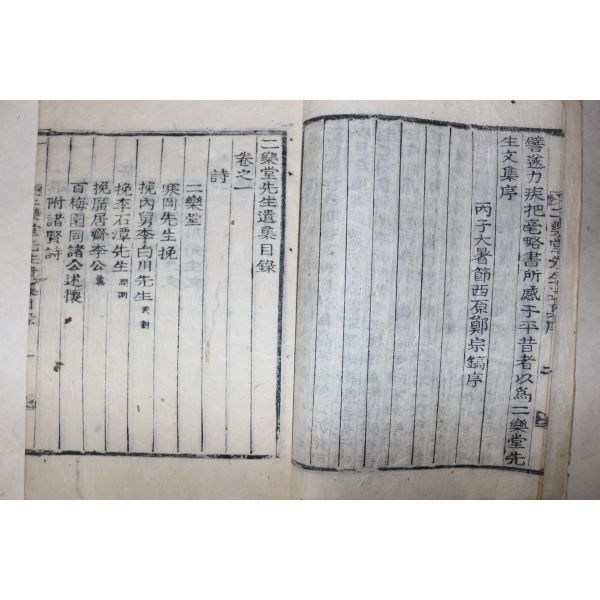 譽遂力疾把毫略書所感于平昔者以爲二樂堂先
生文集序
丙子大暑節西原鄭宗鎬序
二樂堂先生遺集目錄
卷之一
詩
二樂堂
寒岡先生挽
挽內舅李白川先生 天封
挽李石潭先生 潤雨
挽廣居齋李公
百梅園同諸公述懷
附諸賢詩